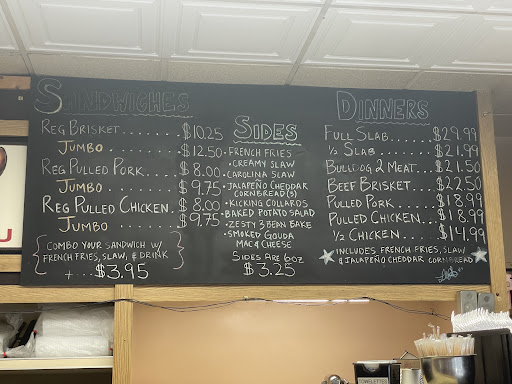 SANDWICHES
REG BRISKET........$10.25
JUMBO..........$12.50
REG PULLED PORK....$8.00
JUMBO..........$9.75
REG PULLED CHICKEN.$8.00
JUMBO..........$9.75
COMBO YOUR SANDWICH W/
FRENCH FRIES, SLAW, & DRINK
+...$3.95
SIDES
• FRENCH FRIES
• CREAMY SLAW
• CAROLINA SLAW
• JALAPEÑO CHEDDAR
CORNBREAD(S)
• KICKING COLLARDS
• BAKED POTATO SALAD
• ZESTY 3 BEAN BAKE
• SMOKED GOUDA
MAC & CHEESE
SIDES ARE 6OZ
$3.25
DINNERS
FULL SLAB.......$29.99
½ SLAB..........$21.99
BULLDOG 2 MEAT..$21.50
BEEF BRISKET....$22.50
PULLED PORK.....$18.99
PULLED CHICKEN...$18.99
½ CHICKEN.......$14.99
INCLUDES FRENCH FRIES, SLAW
& JALAPEÑO CHEDDAR CORNBREAD
TOWELETTES